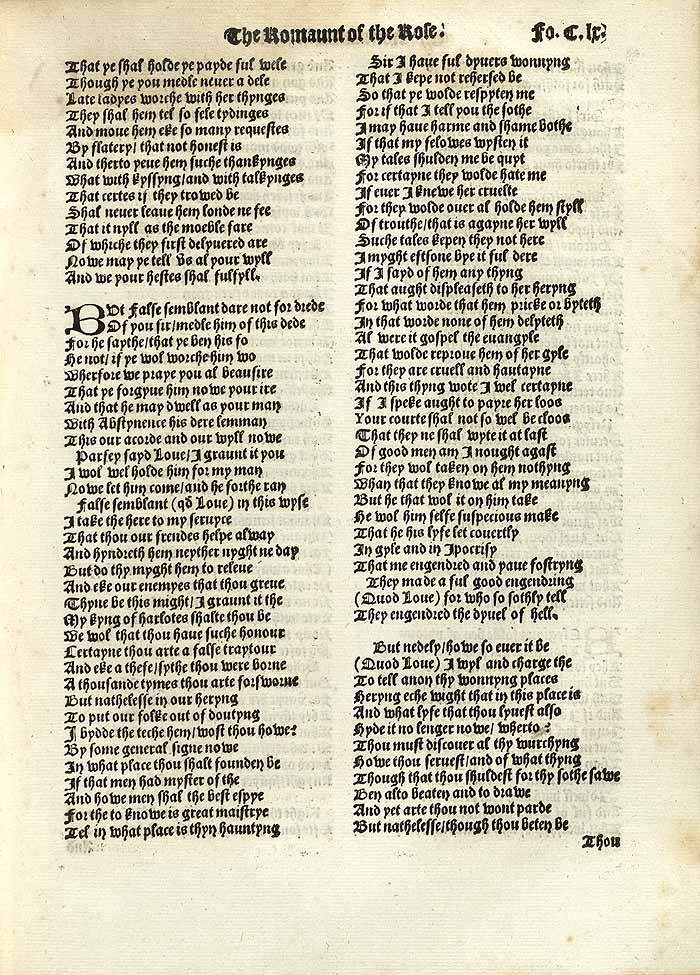 The Romaunt of the Rose. Fo. C.lx.
That ye shal holde ye payde ful wele
Though ye you medle neuer a dele
Late ladyes worche with her thynges
They shal hem tel so fele tydinges
And moue hem eke so many requestes
By flatery/ that not honest is
And therto yeue hem suche thankynges
What with kyssyng/and with talkynges
That certes if they trowed be
Shal neuer leaue hem londe ne fee
That it nyll as the moeble fare
Of whiche they first delyuered are
Nowe may ye tell vs al your wyll
And we your hestes shal fulfyll.
BVt False semblant dare not for drede
Of you sir/medle him of this dede
For he saythe/that ye ben his fo
He not/ if ye wol worche him wo
Wherfore we praye you al beausire
That ye forgyue him nowe your ire
And that he may dwell as your man
With Abstynence his dere lemman
This our acorde and our wyll nowe
Parfey sayd Loue/I graunt it you
I wol wel holde him for my man
Nowe let him come/and he forthe ran
False semblant (qd Loue) in this wyse
I take the here to my seruyce
That thou our frendes helpe alway
And hyndreth hem neyther nyght ne day
But do thy myght hem to releue
And eke our enemyes that thou greue
Thyne be this might/I graunt it the
My kyng of harlotes shalte thou be
We wol that thou haue suche honour
Certayne thou arte a false traytour
And eke a thefe/sythe thou were borne
A thousande tymes thou arte forsworne
But nathelesse in our heryng
To put our folke out of doutyng
I bydde the teche hem/wost thou howe?
By some general signe nowe
In what place thou shalt founden be
If that men had myster of the
And howe men shal the best espye
For the to knowe is great maistrye
Tel in what place is thyn hauntyng
Sir I haue ful dyuers wonnyng
That I kepe not rehersed be
So that ye wolde respyten me
For if that I tell you the sothe
I may haue harme and shame bothe
If that my felowes wysten it
My tales shulden me be quyt
For certayne they wolde hate me
If euer I knewe her cruelte
For they wolde ouer al holde hem styll
Of trouthe/that is agayne her wyll
Suche tales kepen they not here
I myght eftsone bye it ful dere
If I sayd of hem any thyng
That aught displeaseth to her heryng
For what worde that hem pricke or byteth
In that worde none of hem delyteth
Al were it gospel the euangyle
That wolde reproue hem of her gyle
For they are cruell and hautayne
And this thyng wote I wel certayne
If I speke aught to payre her loos
Your courte shal not so wel be cloos
That they ne shal wyte it at last
Of good men am I nought agast
For they wol taken on hem nothyng
Whan that they knowe al my meanyng
But he that wol it on him take
He wol him selfe suspecious make
That he his lyfe let couertly
In gyle and in Ipocrisy
That me engendred and yaue fostryng
They made a ful good engendring
(Quod Loue) for who so sothly tell
They engendred the dyuel of hell.
But nedely/howe so euer it be
(Quod Loue) I wyl and charge the
To tell anon thy wonnyng places
Heryng eche wight that in this place is
And what lyfe that thou lyuest also
Hyde it no lenger nowe/ wherto?
Thou must discouer al thy wurchyng
Howe thou seruest/and of what thyng
Though that thou shuldest for thy sothe sawe
Ben alto beaten and to drawe
And yet arte thou not wont parde
But nathelesse/though thou beten be
Thou